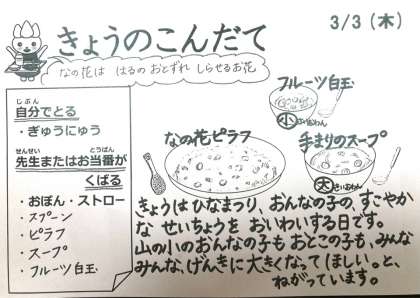 きょうのこんだて
3/3（木）
なの花は はるの おとずれ しらせるお花
じぶん
自分でとる
・ぎゅうにゅう
せんせい とうばん
先生またはお当番が
くばる
・おぼん・ストロー
・スプーン
・ピラフ
・スープ
・フルーツ白玉
フルーツ白玉
小
なの花ピラフ
手まりのスープ
大
きょうはひなまつり、おんなの子の、すこやか
な せいちょうを おいわいする日です。
山の小のおんなの子も おとこの子も、みんな
みんな、げんきに大きくなって ほしい。と、
ねがっています。